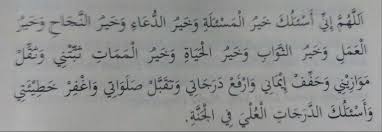 اَللّٰهُمَّ إِنِّي أَسْئَلُكَ خَيْرَ الْمَسْئَلَةِ وَخَيْرَ الدُّعَاءِ وَخَيْرَ النَّجَاحِ وَخَيْرَ
الْعَمَلِ وَخَيْرَ الثَّوَابِ وَخَيْرَ الْحَيَاةِ وَخَيْرَ الْمَمَاتِ ثَبِّتْنِي وَثَقِّلْ
مَوَازِيْنِي وَحَقِّقْ إِيْمَانِي وَارْفَعْ دَرَجَاتِي وَتَقَبَّلْ صَلَوَاتِي وَاغْفِرْ خَطِيْئَتِي
وَأَسْئَلُكَ الدَّرَجَاتِ الْعُلٰي فِي الْجَنَّةِ.